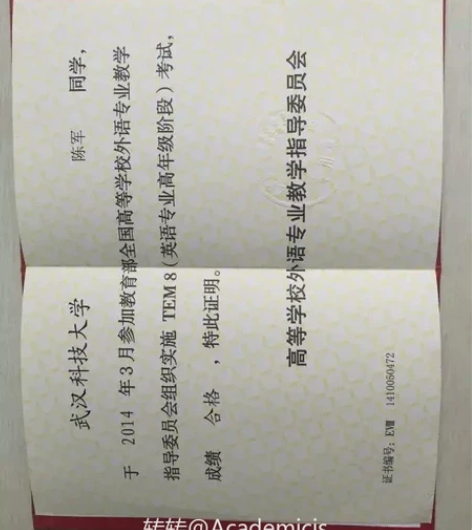 武汉科技大学 陈军 同学，
于 2014 年 3 月参加教育部全国高等学校外语专业教学
指导委员会组织实施 TEM 8（英语专业高年级阶段）考试，
成绩 合格 ，特此证明。
高等学校外语专业教学指导委员会
证书编号：EⅧ 1410050472
转转@Academicis